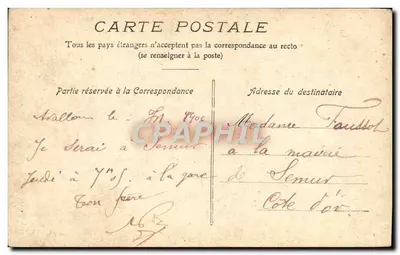 CARTE POSTALE
Tous les pays étrangers n'acceptent pas la correspondance au recto
(se renseigner à la poste)
Partie réservée à la Correspondance
Avallon le
Je serai à Semur
Jeudi à 7h05 à la gare
Ton père
Adresse du destinataire
Madame Foussot
à la mairie
de Semur
Côte d'or
CPARAMA